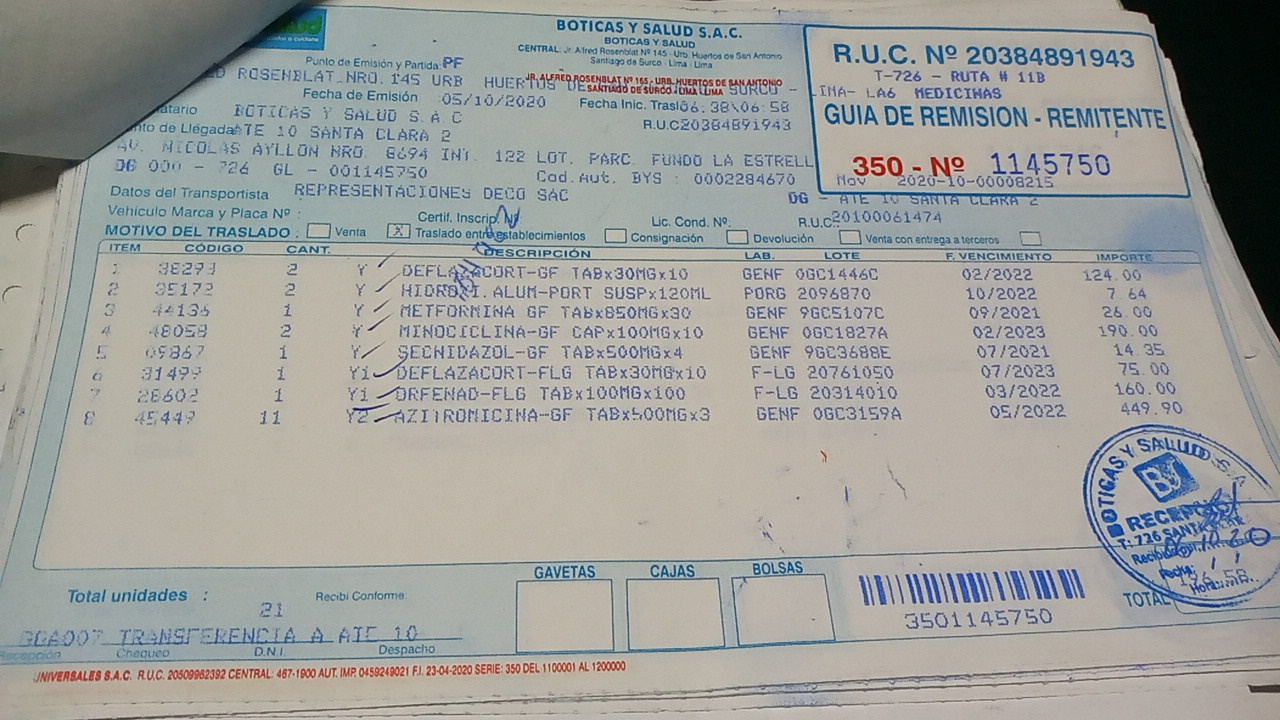 BOTICAS Y SALUD S.A.C.
BOTICAS Y SALUD
CENTRAL: Jr. Alfred Rosenblat Nº 145 - Urb. Huertos de San Antonio
Santiago de Surco - Lima - Lima
JR. ALFRED ROSENBLAT Nº 165 - URB. HUERTOS DE SAN ANTONIO
SANTIAGO DE SURCO - LIMA - LIMA
R.U.C. Nº 20384891943
T-726 - RUTA # 11B
LIMA- LA6 MEDICINAS
GUIA DE REMISION - REMITENTE
350 - Nº 1145750
Mov 2020-10-00008215
Punto de Emisión y Partida: PF
ROSENBLAT NRO. 145 URB HUERTOS DE SURCO -
Fecha de Emisión : 05/10/2020 Fecha Inic. Traslado: 06:38\06:58
BOTICAS Y SALUD S A C R.U.C 20384891943
Punto de Llegada: ATE 10 SANTA CLARA 2
AV. NICOLAS AYLLON NRO. 8694 INT. 122 LOT. PARC. FUNDO LA ESTRELL
DG 000 - 726 GL - 001145750 Cod.Aut. BYS : 0002284670
Datos del Transportista REPRESENTACIONES DECO SAC DG - ATE 10 SANTA CLARA 2
Vehículo Marca y Placa Nº : Certif. Inscrip. Nº Lic. Cond. Nº: R.U.C.: 20100061474
MOTIVO DEL TRASLADO : Venta X Traslado entre establecimientos Consignación Devolución Venta con entrega a terceros
ITEM CÓDIGO CANT. DESCRIPCIÓN LAB. LOTE F. VENCIMIENTO IMPORTE
1 38293 2 Y DEFLAZACORT-GF TABx30MGx10 GENF 0GC1446C 02/2022 124.00
2 35172 2 Y HIDROXI.ALUM-PORT SUSPx120ML PORG 2096870 10/2022 7.64
3 44136 1 Y METFORMINA GF TABx850MGx30 GENF 9GC5107C 09/2021 26.00
4 48058 2 Y MINOCICLINA-GF CAPx100MGx10 GENF 0GC1827A 02/2023 190.00
5 09867 1 Y SECNIDAZOL-GF TABx500MGx4 GENF 9GC3688E 07/2021 14.35
6 31499 1 Y1 DEFLAZACORT-FLG TABx30MGx10 F-LG 20761050 07/2023 75.00
7 28602 1 Y1 ORFENAD-FLG TABx100MGx100 F-LG 20314010 03/2022 160.00
8 45449 11 Y2 AZITROMICINA-GF TABx500MGx3 GENF 0GC3159A 05/2022 449.90
BOTICAS Y SALUD S.A.
BS
RECEPCION
T: 726 SANTA CLARA
Fecha:
Hora:
GAVETAS CAJAS BOLSAS
Total unidades : 21 Recibi Conforme:
3501145750
TOTAL
GGA007 TRANSFERENCIA A ATE 10
Recepción Chequeo D.N.I. Despacho
UNIVERSALES S.A.C. R.U.C. 20509962392 CENTRAL: 467-1900 AUT. IMP. 0459249021 F.I. 23-04-2020 SERIE: 350 DEL 1100001 AL 1200000